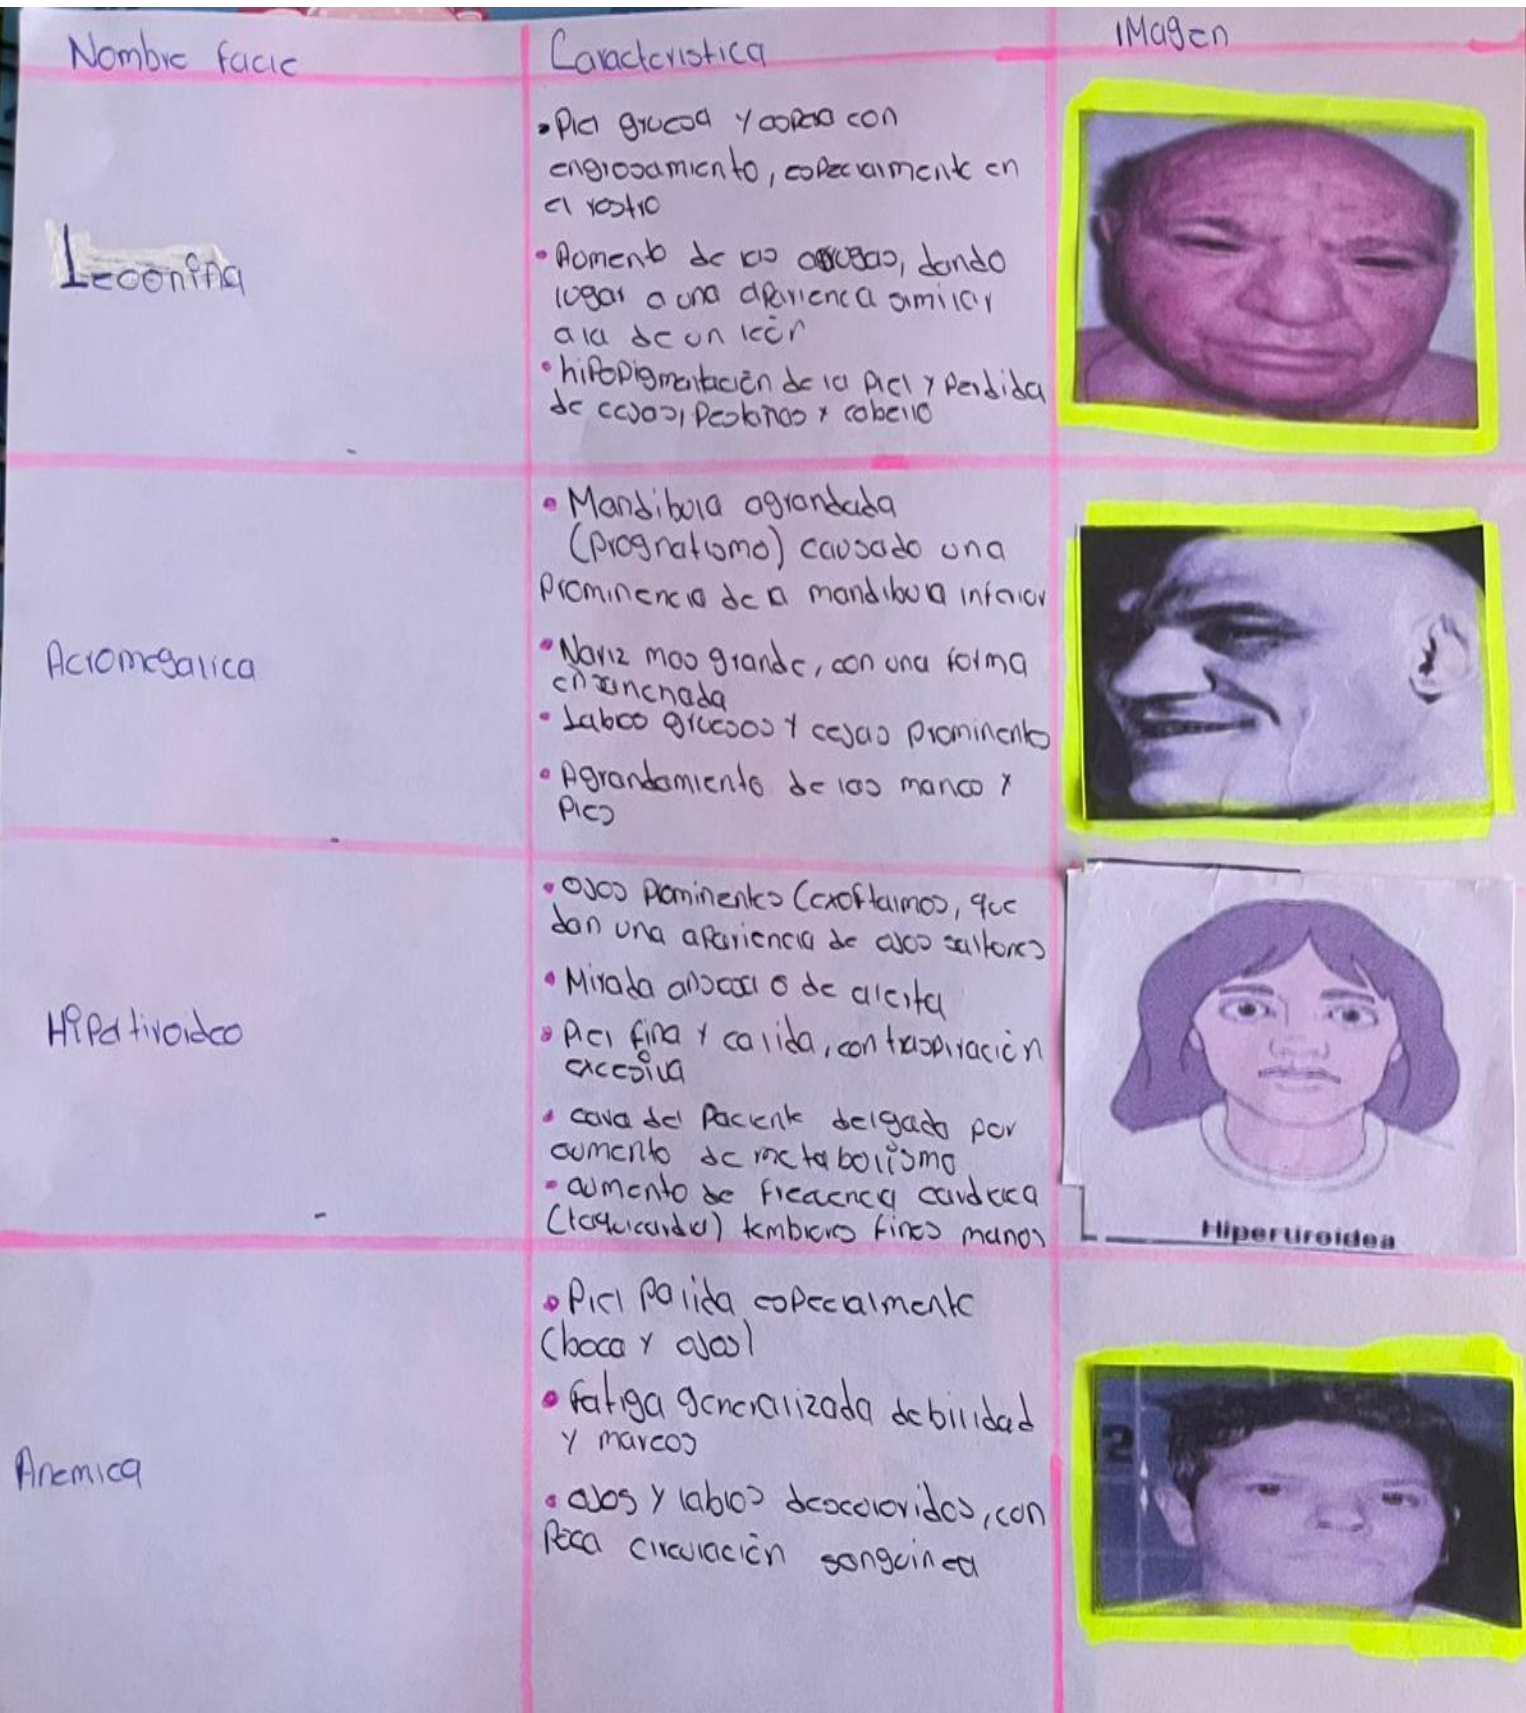 Nombre facie
Caracteristica
iMagen
Leoonina
• Piel gruesa y aspera con
engrosamiento, especialmente en
el rostro
• Aumento de las arrugas, dando
lugar a una aparienca similar
a la de un león
• hipopigmentación de la piel y perdida
de cejas, pestañas y cabello
Acromegalica
• Mandibula agrandada
(prognatismo) causado una
prominencia de a mandibula inferior
• Nariz mas grande, con una forma
ensanchada
• Labios gruesos y cejas prominents
• Agrandamiento de las manos y
pies
Hipertiroideo
• Ojos prominentes (exoftalmos, que
dan una apariencia de ojos saltones
• Mirada ansiosa o de alerta
• Piel fina y calida, con traspiración
excesiva
• cara del paciente delgado por
aumento de metabolismo
• aumento de frecuencia cardiaca
(taquicardia) temblores finos manos
Hipertiroidea
Anemica
• Piel palida especialmente
(boca y ojos)
• Fatiga generalizada debilidad
y mareos
• Ojos y labios descoloridos, con
poca circulación sanguinea
2